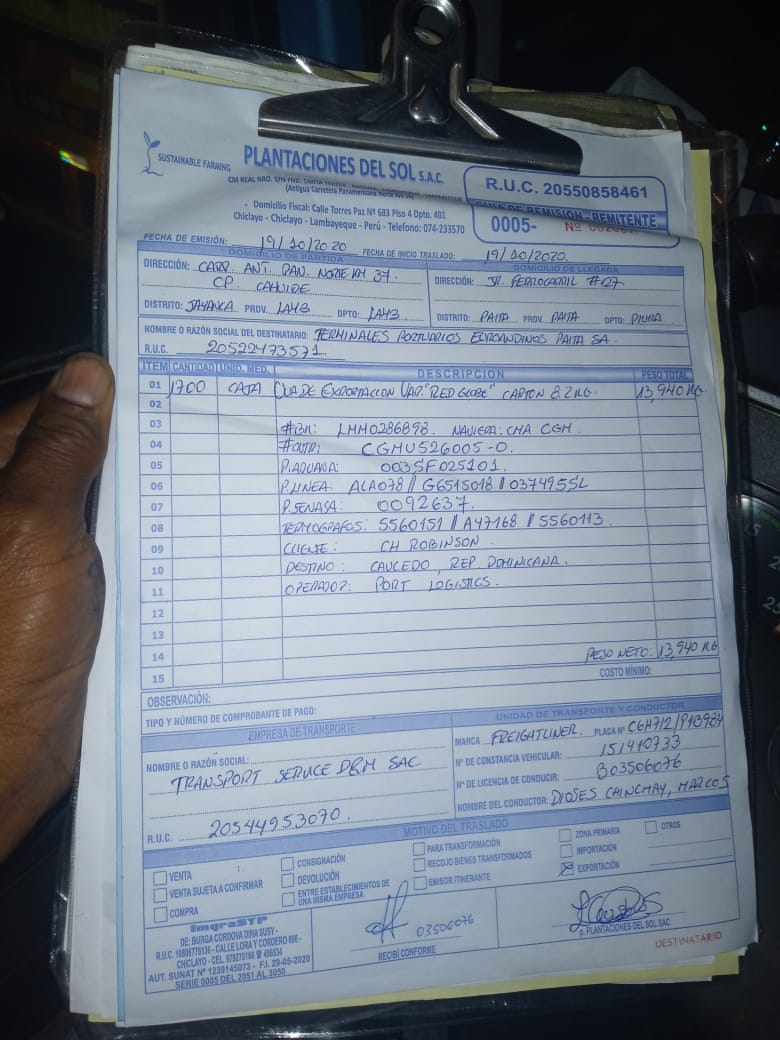 SUSTAINABLE FARMING
PLANTACIONES DEL SOL S.A.C.
(Antigua Carretera Panamericana
Domicilio Fiscal: Calle Torres Paz Nº 683 Piso 4 Dpto. 401
Chiclayo - Chiclayo - Lambayeque - Perú - Telefono: 074-233570
R.U.C. 20550858461
GUIA DE REMISION - REMITENTE
0005- Nº
FECHA DE EMISIÓN: 19/10/2020 FECHA DE INICIO TRASLADO: 19/10/2020.
DOMICILIO DE PARTIDA
DIRECCIÓN: CARR. ANT. PAN. NORTE KM 37.
CP. CAHUIDE
DISTRITO: JAYANCA PROV. LAMB DPTO: LAMB
DOMICILIO DE LLEGADA
DIRECCIÓN: JR. FERROCARRIL #127
DISTRITO: PAITA PROV. PAITA DPTO: PIURA
NOMBRE O RAZÓN SOCIAL DEL DESTINATARIO: TERMINALES PORTUARIOS EUROANDINOS PAITA SA.
R.U.C. 20522473571
ITEM CANTIDAD UNID. MED. DESCRIPCION PESO TOTAL
01 1700 CAJA UVA DE EXPORTACION VAR. "RED GLOBE" CARTON 8.2 KG. 13,940 KG
02
03 #BK: LMM0286898. NAVIERA: CMA CGM.
04 #CNTR: CGMU526005-0.
05 P. ADUANA: 003SF025101.
06 P. LINEA: ALA078 // G6515018 // 037495SL
07 P. SENASA: 0092637.
08 TERMOGRAFOS: 5560151 // A47168 // 5560113.
09 CLIENTE: CH ROBINSON.
10 DESTINO: CAUCEDO, REP. DOMINICANA.
11 OPERADOR: PORT LOGISTICS.
12
13
14 PESO NETO: 13,940 KG.
15 COSTO MÍNIMO:
OBSERVACIÓN:
TIPO Y NÚMERO DE COMPROBANTE DE PAGO:
EMPRESA DE TRANSPORTE
NOMBRE O RAZÓN SOCIAL:
TRANSPORT SERVICE D&M SAC
R.U.C. 20544953070.
UNIDAD DE TRANSPORTE Y CONDUCTOR
MARCA FREIGHTLINER. PLACA Nº
Nº DE CONSTANCIA VEHICULAR: 151410733
Nº DE LICENCIA DE CONDUCIR: B03506076
NOMBRE DEL CONDUCTOR: DIOSES CHINCHAY, MARCOS
MOTIVO DEL TRASLADO
VENTA
VENTA SUJETA A CONFIRMAR
COMPRA
CONSIGNACIÓN
DEVOLUCIÓN
ENTRE ESTABLECIMIENTOS DE
UNA MISMA EMPRESA
PARA TRANSFORMACIÓN
RECOJO BIENES TRANSFORMADOS
EMISOR ITINERANTE
ZONA PRIMARIA
IMPORTACIÓN
EXPORTACIÓN
OTROS
ImgraSTP
DE: BURGA CORDOVA DINA SUSY -
CHICLAYO - CEL.
AUT. SUNAT Nº 1239145073 - F.I. 29-05-2020
SERIE 0005 DEL 2051 AL 3050
03506076
RECIBÍ CONFORME
p. PLANTACIONES DEL SOL SAC
DESTINATARIO